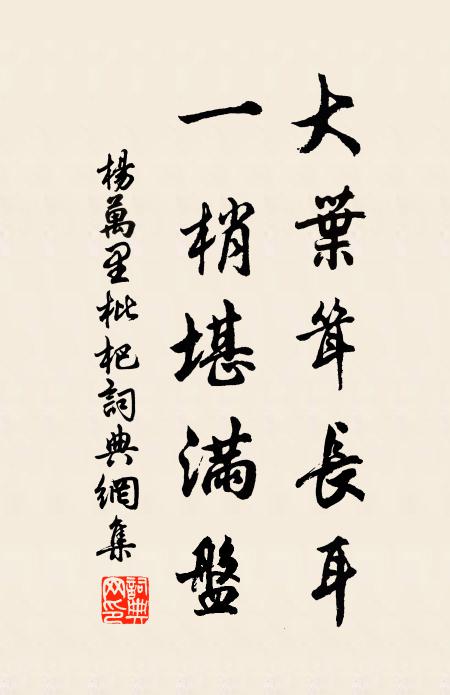 大葉耸長耳
一梢堪滿盤
楊萬里枇杷詞典網集
詞典网印